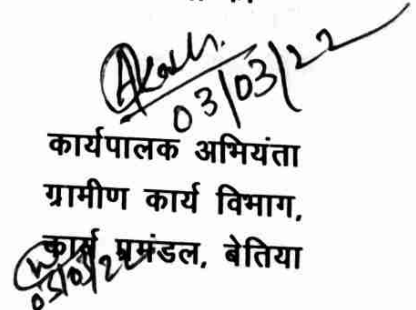 03/03/22
कार्यपालक अभियंता
ग्रामीण कार्य विभाग,
कार्य प्रमंडल, बेतिया
03/03/22